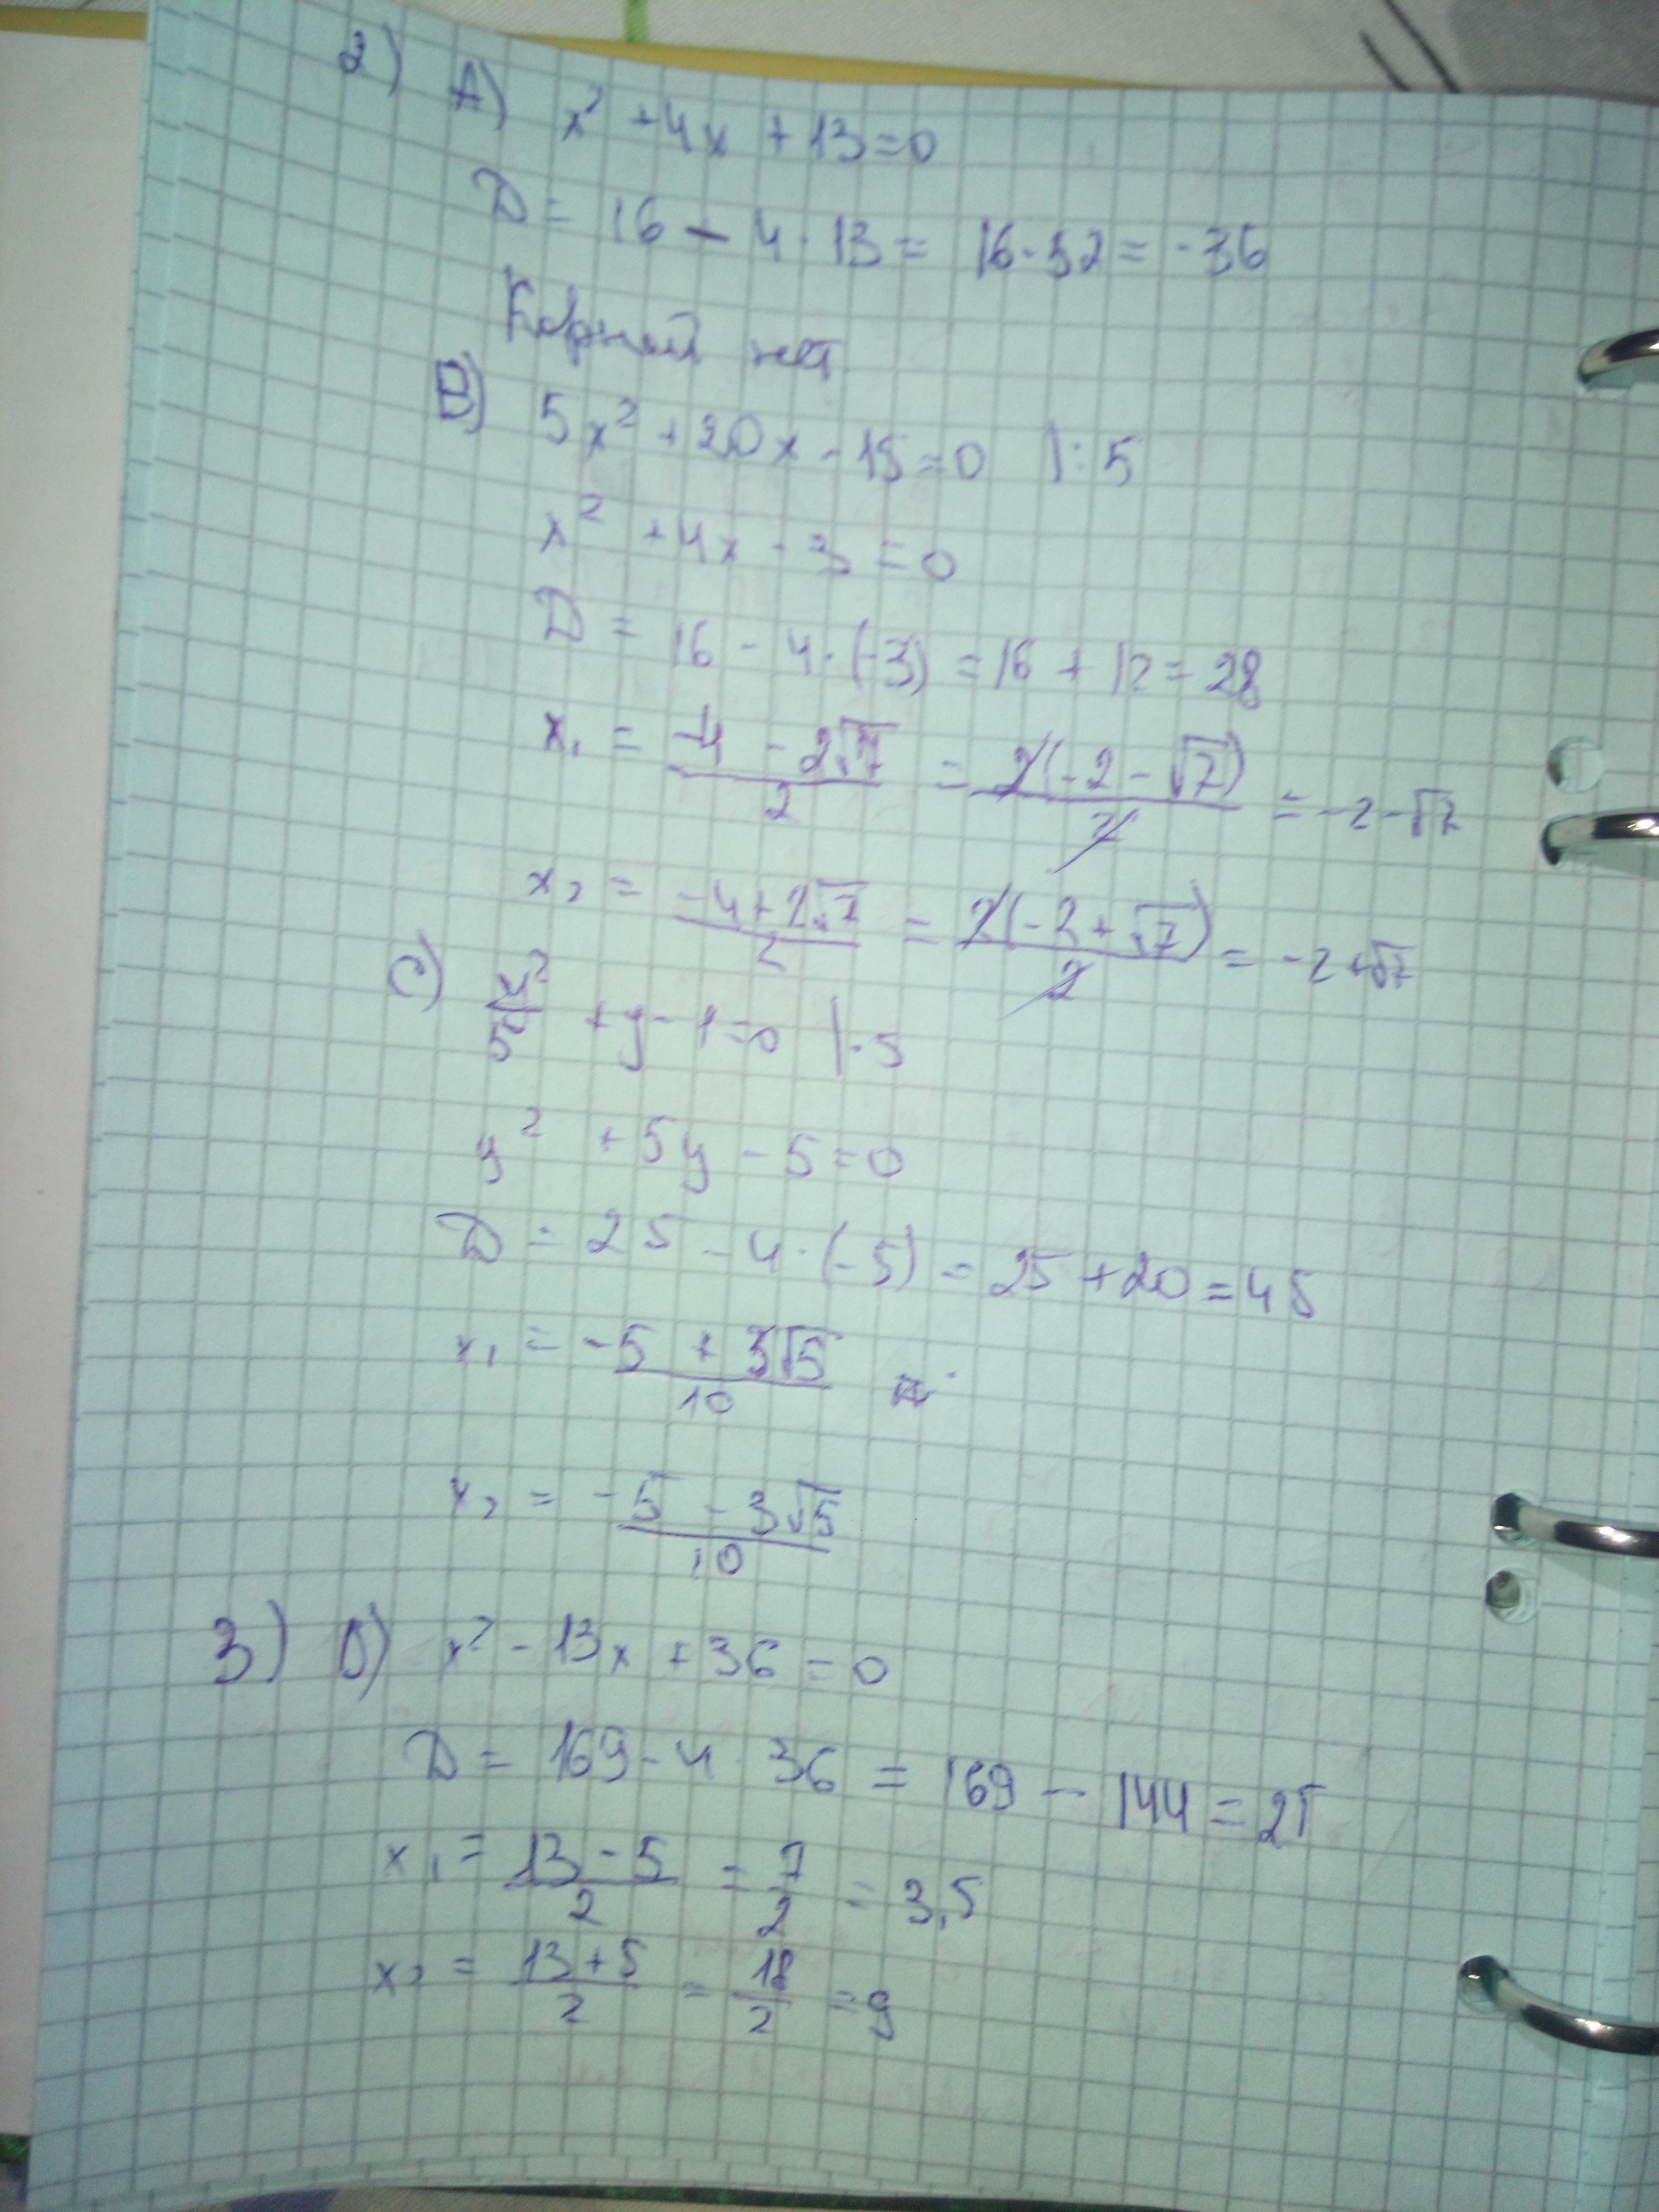 2) A) x² + 4x + 13 = 0
D = 16 - 4 · 13 = 16 - 52 = -36
Корней нет
B) 5x² + 20x - 15 = 0 |: 5
x² + 4x - 3 = 0
D = 16 - 4 · (-3) = 16 + 12 = 28
x₁ = (-4 - 2√7)/2 = 2(-2 - √7)/2 = -2 - √7
x₂ = (-4 + 2√7)/2 = 2(-2 + √7)/2 = -2 + √7
C) y²/5 + y - 1 = 0 | · 5
y² + 5y - 5 = 0
D = 25 - 4 · (-5) = 25 + 20 = 45
x₁ = (-5 + 3√5)/10
x₂ = (-5 - 3√5)/10
3) 0) x² - 13x + 36 = 0
D = 169 - 4 · 36 = 169 - 144 = 25
x₁ = (13 - 5)/2 = 7/2 = 3,5
x₂ = (13 + 5)/2 = 18/2 = 9